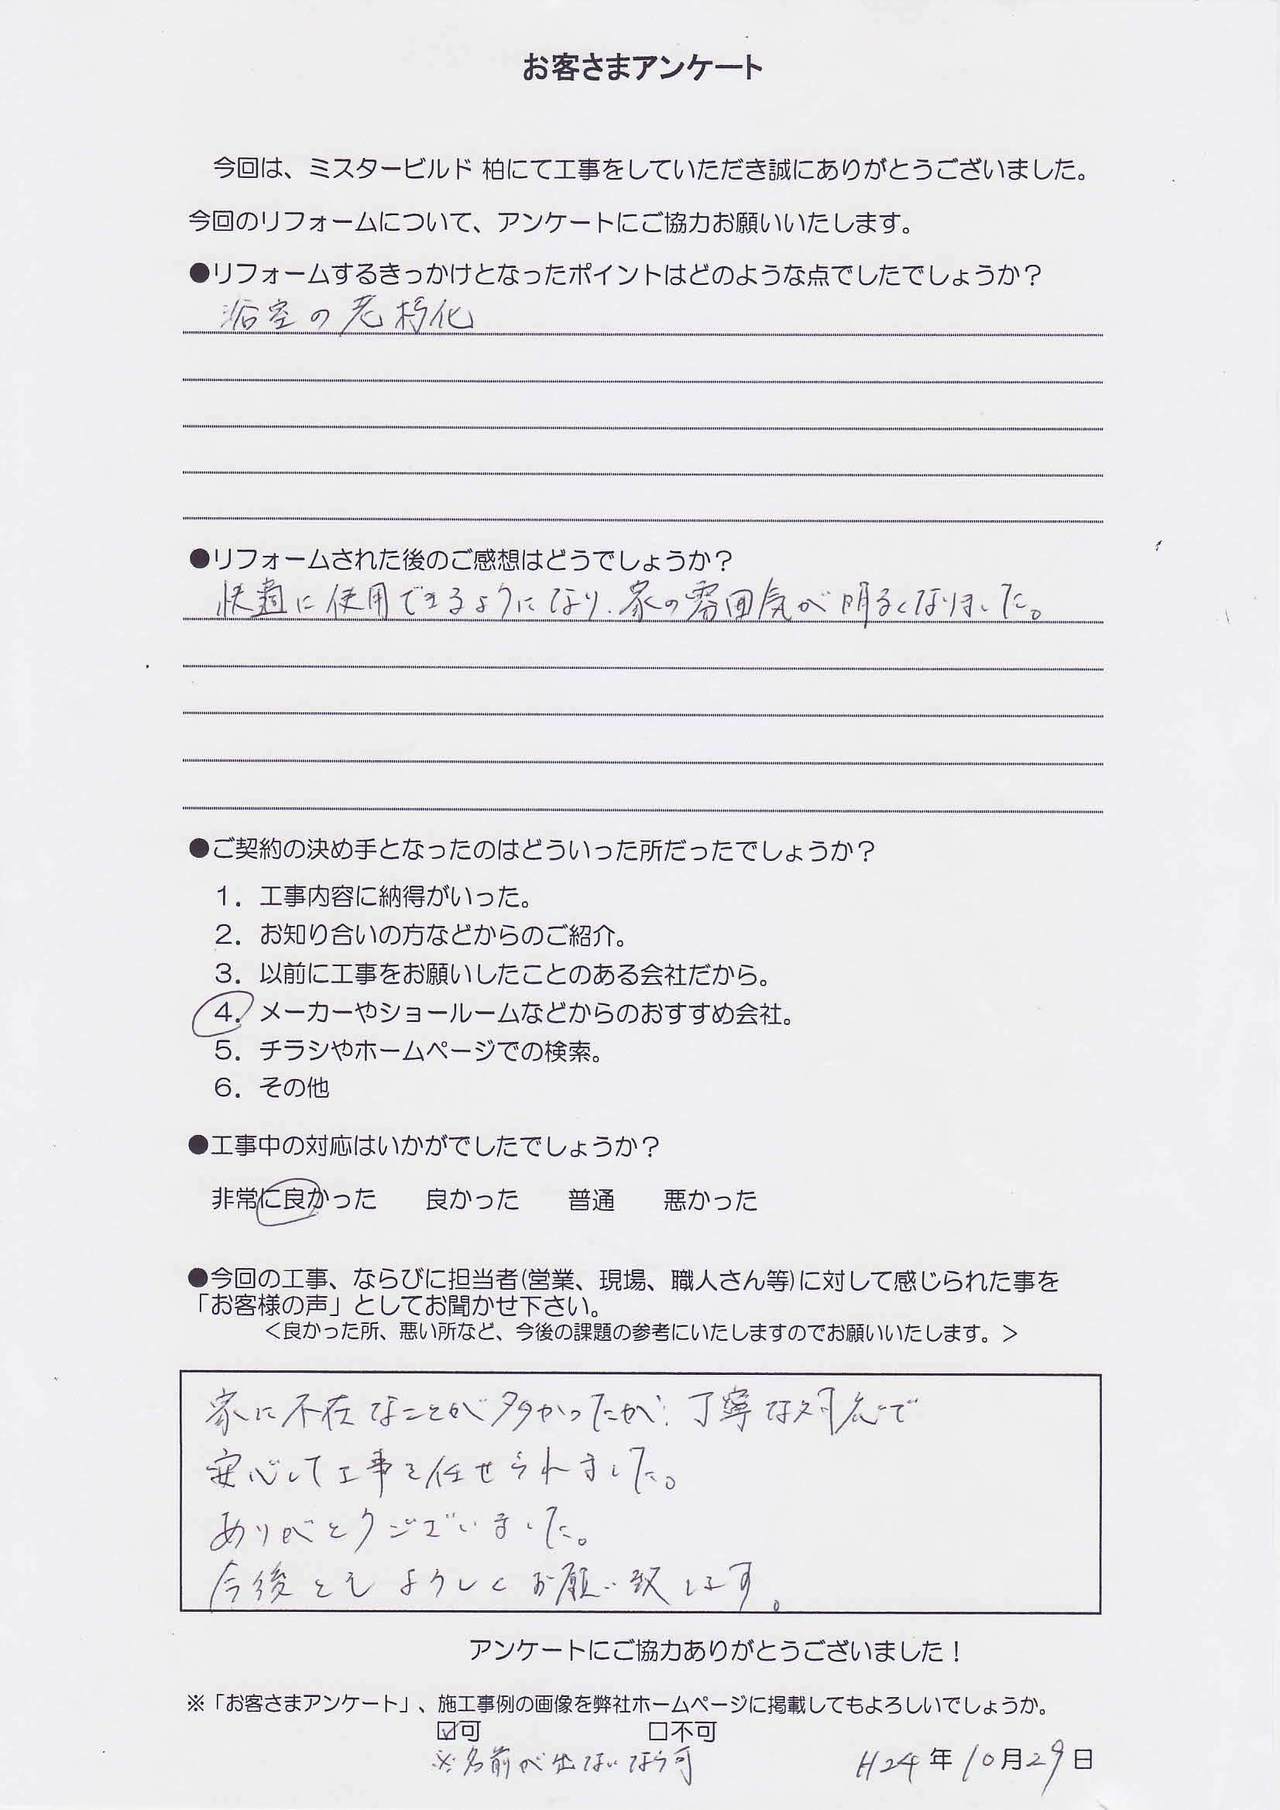 お客さまアンケート
今回は、ミスタービルド 柏にて工事をしていただき誠にありがとうございました。
今回のリフォームについて、アンケートにご協力お願いいたします。
●リフォームするきっかけとなったポイントはどのような点でしたでしょうか？
浴室の老朽化
●リフォームされた後のご感想はどうでしょうか？
快適に使用できるようになり、家の雰囲気が明るくなりました。
●ご契約の決め手となったのはどういった所だったでしょうか？
1．工事内容に納得がいった。
2．お知り合いの方などからのご紹介。
3．以前に工事をお願いしたことのある会社だから。
4．メーカーやショールームなどからのおすすめ会社。
5．チラシやホームページでの検索。
6．その他
●工事中の対応はいかがでしたでしょうか？
非常に良かった　良かった　普通　悪かった
●今回の工事、ならびに担当者(営業、現場、職人さん等)に対して感じられた事を
「お客様の声」としてお聞かせ下さい。
＜良かった所、悪い所など、今後の課題の参考にいたしますのでお願いいたします。＞
家に不在なことが多かったが、丁寧な対応で
安心して工事を任せられました。
ありがとうございました。
今後ともよろしくお願い致します。
アンケートにご協力ありがとうございました！
※「お客さまアンケート」、施工事例の画像を弊社ホームページに掲載してもよろしいでしょうか。
☑可　□不可
※名前が出ないなら可　H24年10月29日